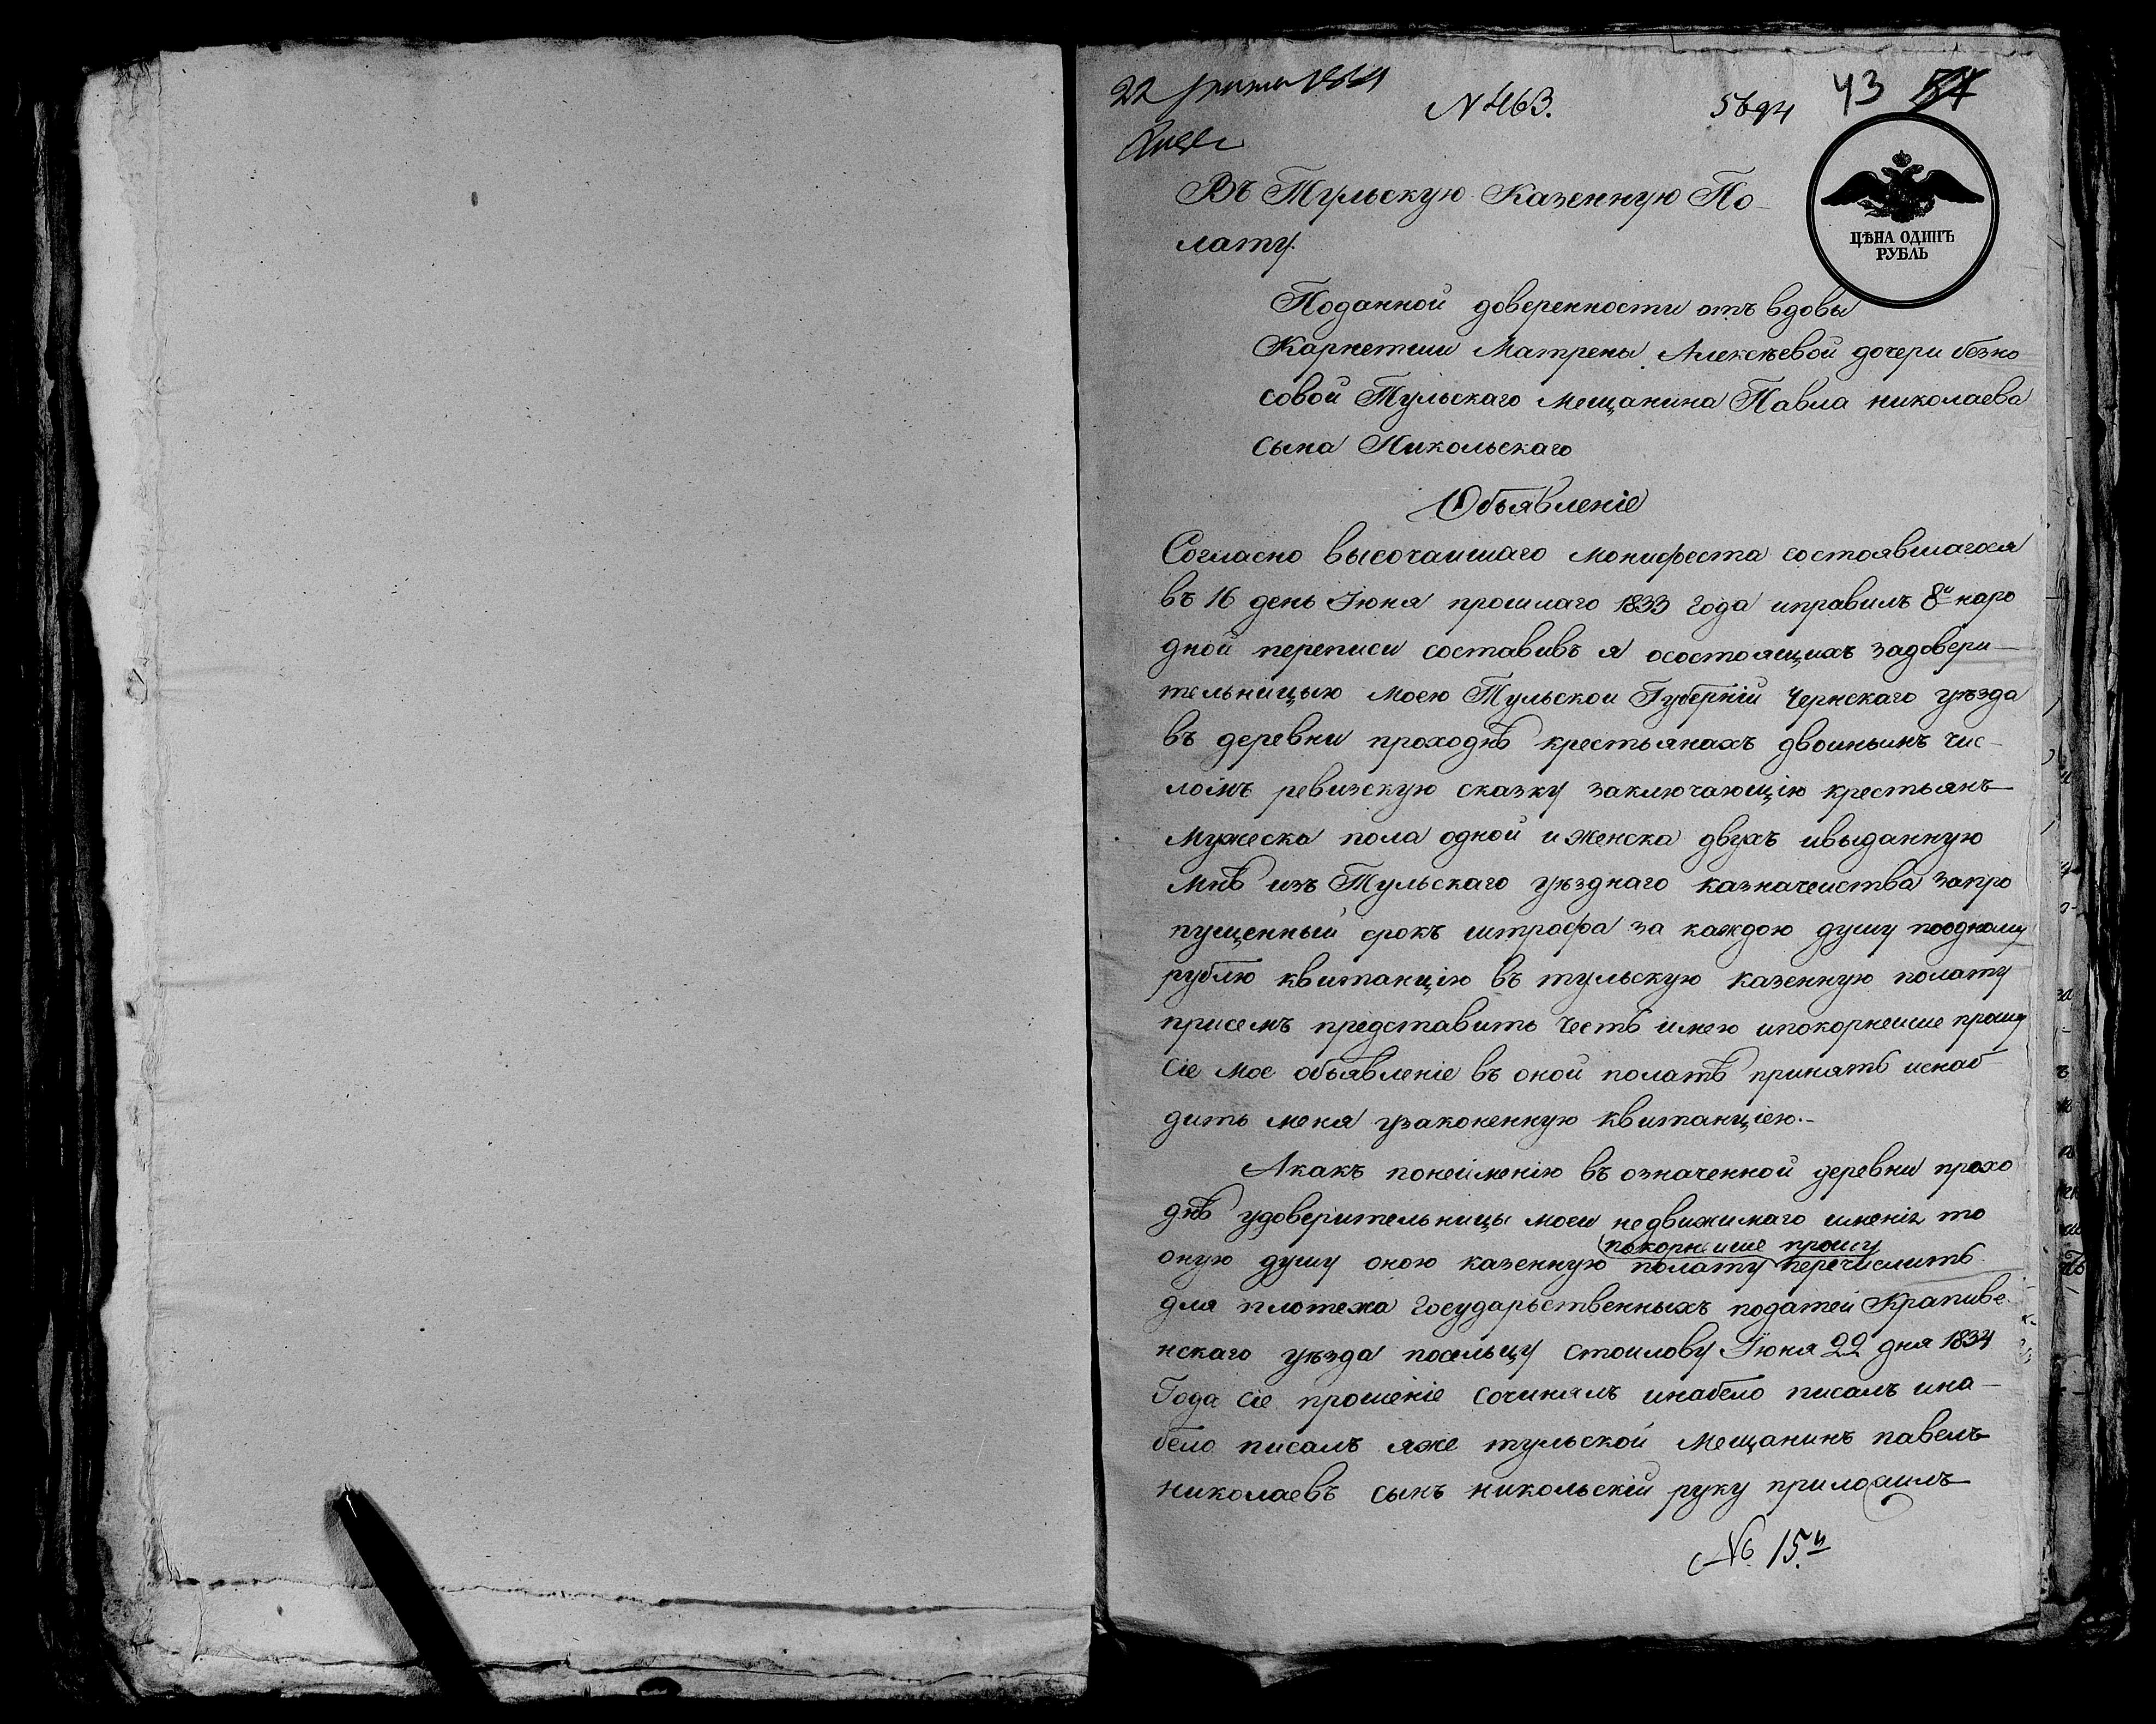 22 июня 1834
N 463.
5694
43
Въ Тульскую Казенную По-
лату.
ЦѢНА ОДИНЪ
РУБЛЬ
Поданной доверенности отъ вдовы
Карнетши Матрены Алексѣевой дочери безно
совой Тульскаго мещанина Павла николаева
сына Никольскаго
Объявленіе
Согласно высочаишаго монифеста состоявшагося
въ 16 день Іюня прошлаго 1833 года иправилъ 8й наро
дной переписи составивъ я осостоящихъ задовери-
тельницью моею Тульскои Губерніи Чернскаго уѣзда
въ деревни проходнѣ крестьянахъ двоиньимъ чис-
лоімъ ревизскую сказку заключающію крестьянъ
Мужеска пола одной и женска двухъ ивыданную
мнѣ изъ Тульскаго уѣзднаго казначеиства запро
пущенный срокъ штрафа за каждою душу поодному
рублю квитанцію въ тульскую казенную полату
присемъ представить честь имею ипокорнеише прошу
сіе мое объявленіе въ оной полатѣ принять иснаб
дить меня узаконенную квитанціею.-
Акакъ понеименію въ означенной деревни прохо
днѣ удоверительницы моеи недвижимаго именія то
покорнеише прошу
оную душу оною казенную полату перечислить
для плотежа государьственныхъ податей Крапиве
нскаго уѣзда посельцу стоилову Іюня 22 дня 1834
Года сіе прошеніе сочинялъ инабело писалъ ина-
бело писалъ яже тульской мещанинъ павелъ
николаевъ сынъ никольскіи руку приложилъ
№ 15й